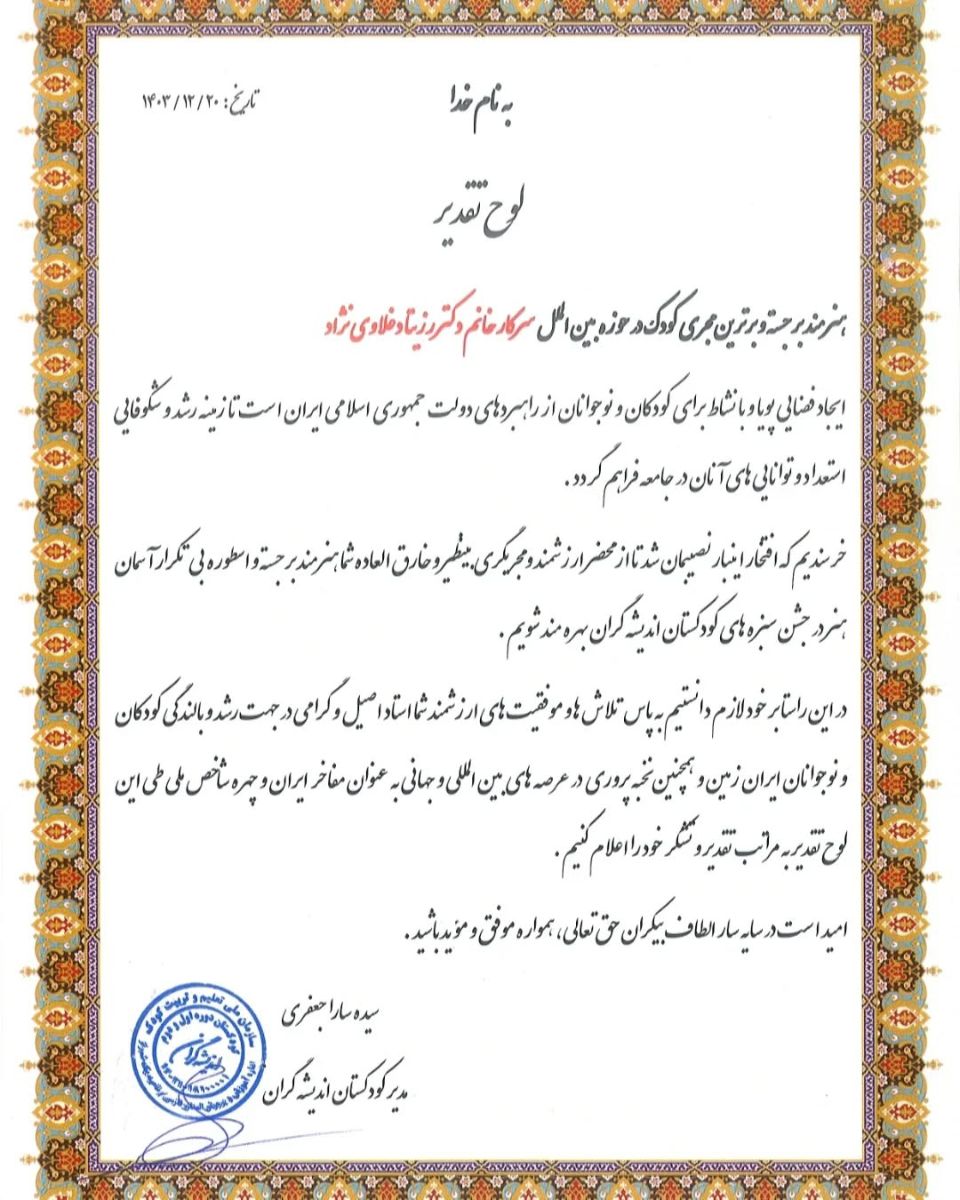 به نام خدا
تاریخ: ۱۴۰۳/۱۲/۲۰
لوح تقدیر
هنرمند برجسته و برترین مجری کودک در حوزه بین الملل سرکار خانم دکتر رزیتا دغلاوی نژاد
ایجاد فضایی پویا و با نشاط برای کودکان و نوجوانان از راهبردهای دولت جمهوری اسلامی ایران است تا زمینه رشد و شکوفایی
استعداد و توانایی های آنان در جامعه فراهم گردد.
خرسندیم که افتخار اینبار نصیبمان شد تا از محضر ارزشمند و مجریگری بینظیر و خارق العاده شما هنرمند برجسته و اسطوره بی تکرار آسمان
هنر در جشن سبزه های کودکستان اندیشه گران بهره مند شویم.
در این راستا بر خود لازم دانستیم به پاس تلاش ها و موفقیت های ارزشمند شما استاد اصیل و گرامی در جهت رشد و بالندگی کودکان
و نوجوانان ایران زمین و همچنین نخبه پروری در عرصه های بین المللی و جهانی به عنوان مفاخر ایران و چهره شاخص ملی طی این
لوح تقدیر به مراتب تقدیر و تشکر خود را اعلام کنیم.
امید است در سایه سار الطاف بیکران حق تعالی، همواره موفق و مؤید باشید.
سیده سارا جعفری
مدیر کودکستان اندیشه گران
سازمان ملی تعلیم و تربیت کودک
کودکستان دوره اول و دوم
اندیشه گران